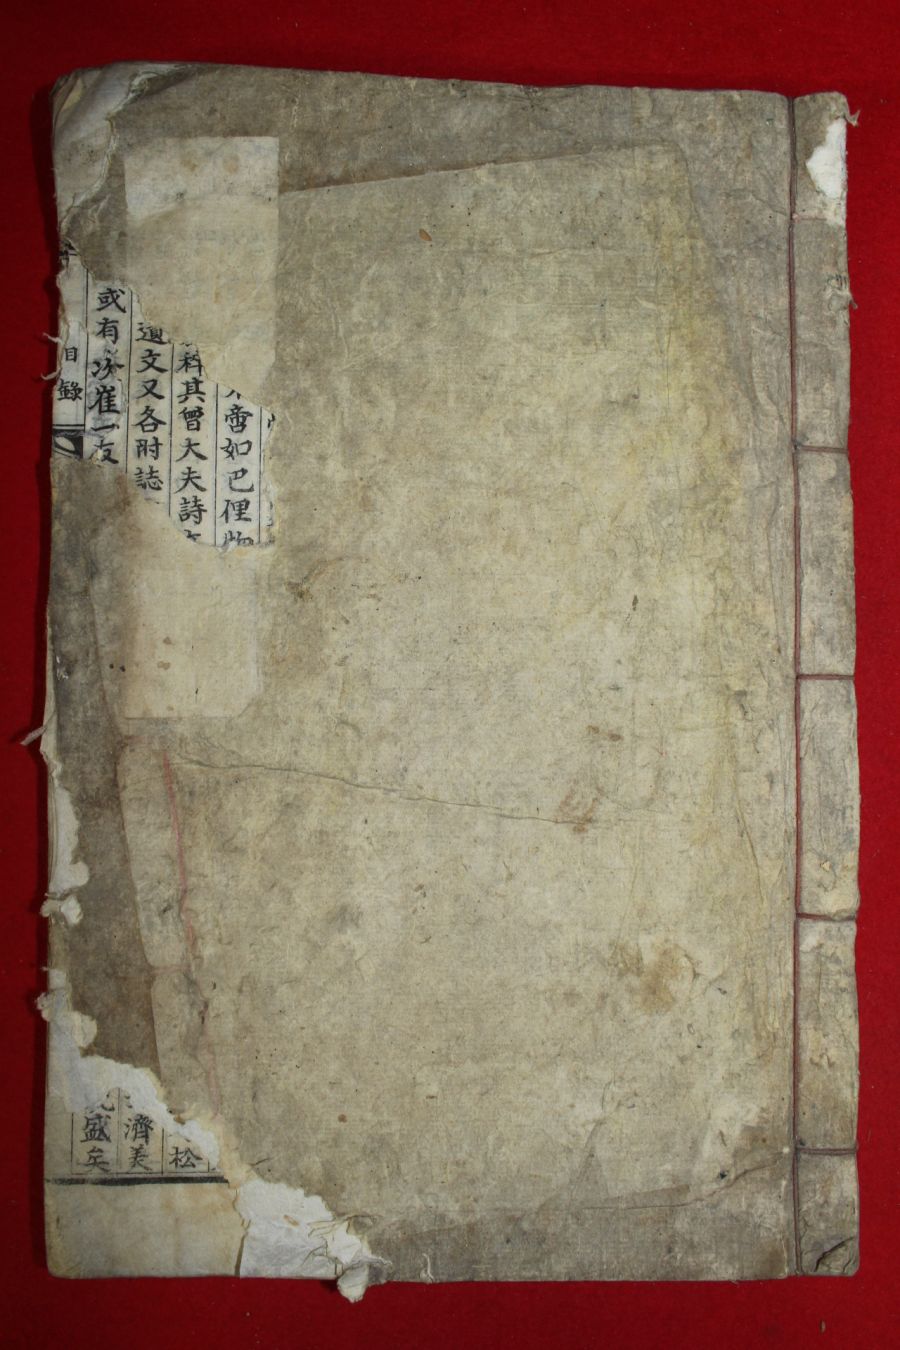 啻如巴俚
科其曾大夫詩
遺文又各附誌
或有 崔一友
目錄
松
濟美
盛矣